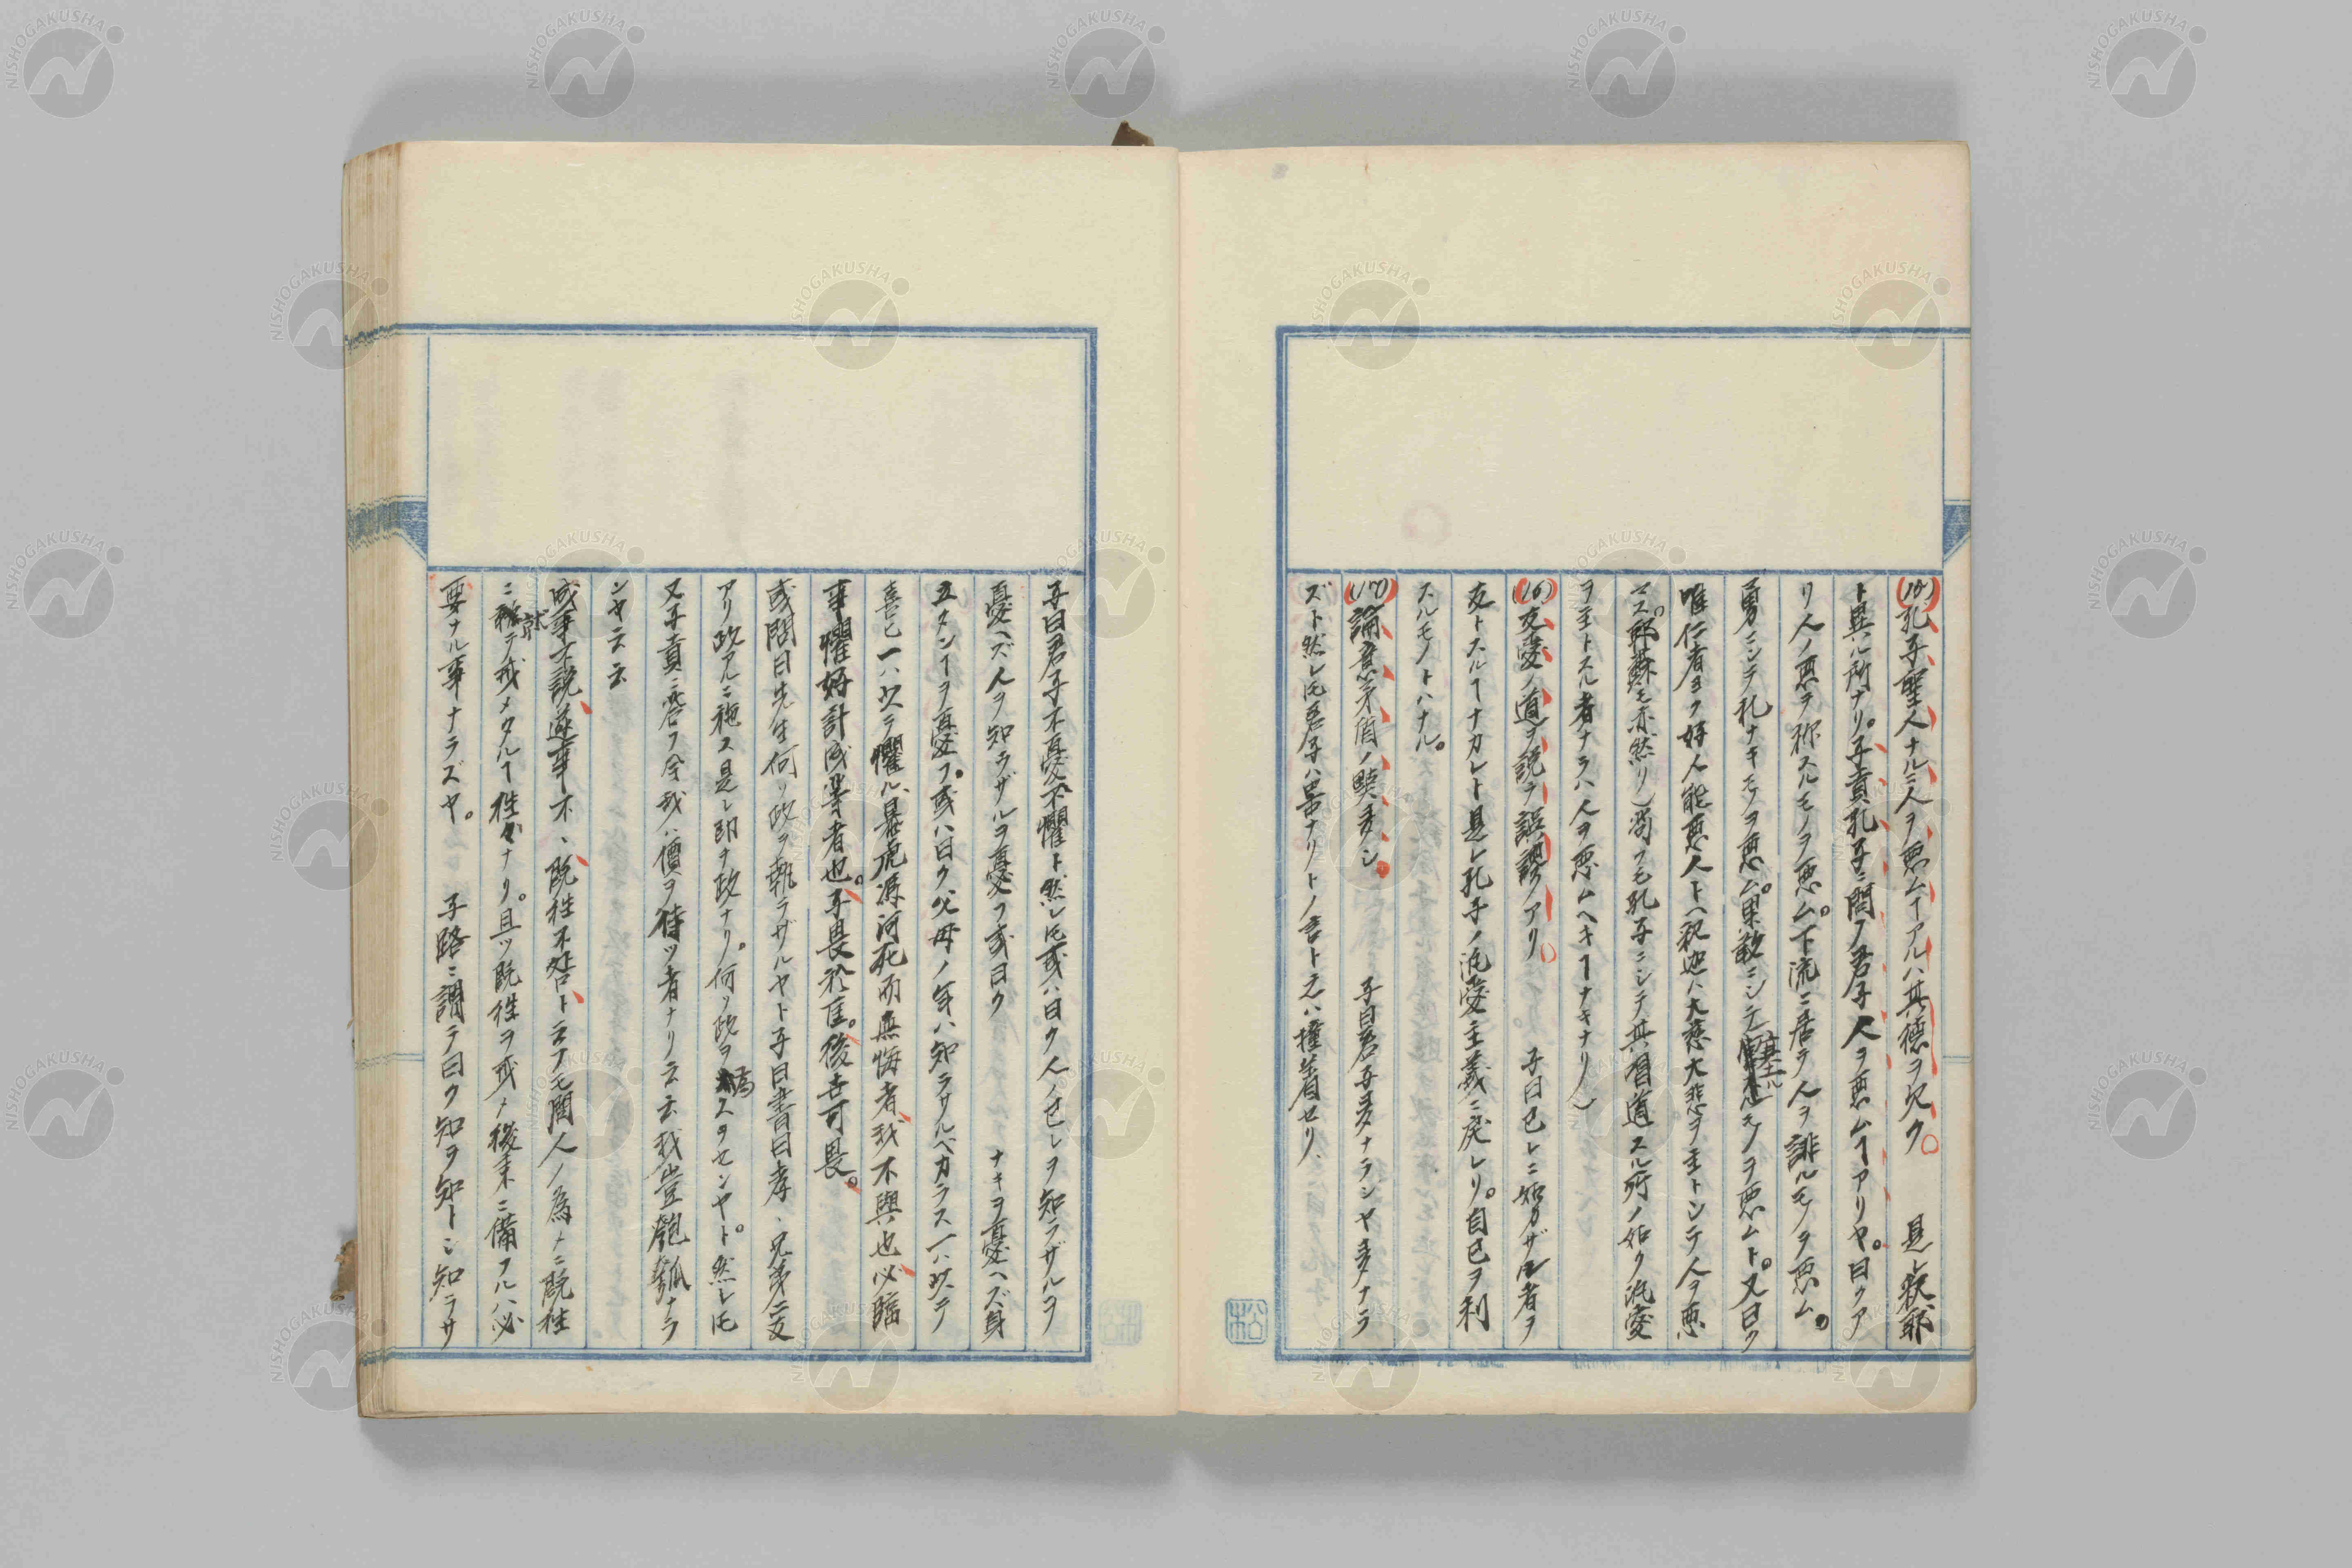 (15)孔子聖人ナルニ人ヲ悪ムヿアルハ其德ヲ欠ク。 是レ釈耶
ト異ル所ナリ。子貢孔子ニ問フ君子人ヲ悪ムヿアリヤ。曰クア
リ人ノ悪ヲ称スルモノヲ悪ム。下流ニ居テ人ヲ誹ルモノヲ悪ム。
勇ニシテ礼ナキモノヲ悪ム。果敢ニシテ塞ルモノヲ悪ムト。又曰ク
唯仁者ヨク好人能悪人ト(釈迦ハ大慈大悲ヲ主トシテ人ヲ悪
マス。耶蘇モ亦然リ)苟フモ孔子ニシテ其唱道スル所ノ如ク汎愛
ヲ主トスル者ナラハ人ヲ悪ムヘキヿナキナリ)
(16)交愛ノ道ヲ説ク誤謬アリ。 子曰己レニ如カザル者ヲ
友トスルヿナカレト是レ孔子ノ汎愛主義ニ戻レリ。自己ヲ利
スルモノトハナル。
(17)論意矛盾ノ弊多シ。 子曰君子多ナランヤ多ナラ
ズト然レ𪜈君子ハ器ナリトノ言ト云ハ撞着セリ、
子曰君子不憂不懼ト然レ𪜈或ハ曰ク人ノ己レヲ知ラザルヲ
憂ヘズ人ヲ知ラザルヲ憂フ或曰ク ナキヲ憂ヘズ身
立タンヿヲ憂フ。或ハ曰ク父母ノ年ハ知ラサルベカラス一ハ以テ
喜ヒ一ハ以テ懼ル、暴虎馮河死而無悔者我不與也必臨
事懼好計成事者也。子畏於匡。後生可畏。
或問曰先生何ソ政ヲ執ラザルヤト子曰書曰孝、兄弟ニ友
アリ政アルニ施ス是レ即チ政ナリ。何ソ政ヲ為スヲセンヤト。然レ𪜈
又子貢ニ答フ今我ハ價ヲ待ツ者ナリ云云我豈匏瓠ナラ
ンヤ云云
成事不説、遂事不、既往不咎トニフモ聞人ノ為メニ既往
ニ就テ戒メタルヿ往々ナリ。且ツ既往ヲ戒メ後来ニ備フルハ必
要ナル事ナラズヤ。 子路ニ謂テ曰ク知ヲ知トシ知ラサ